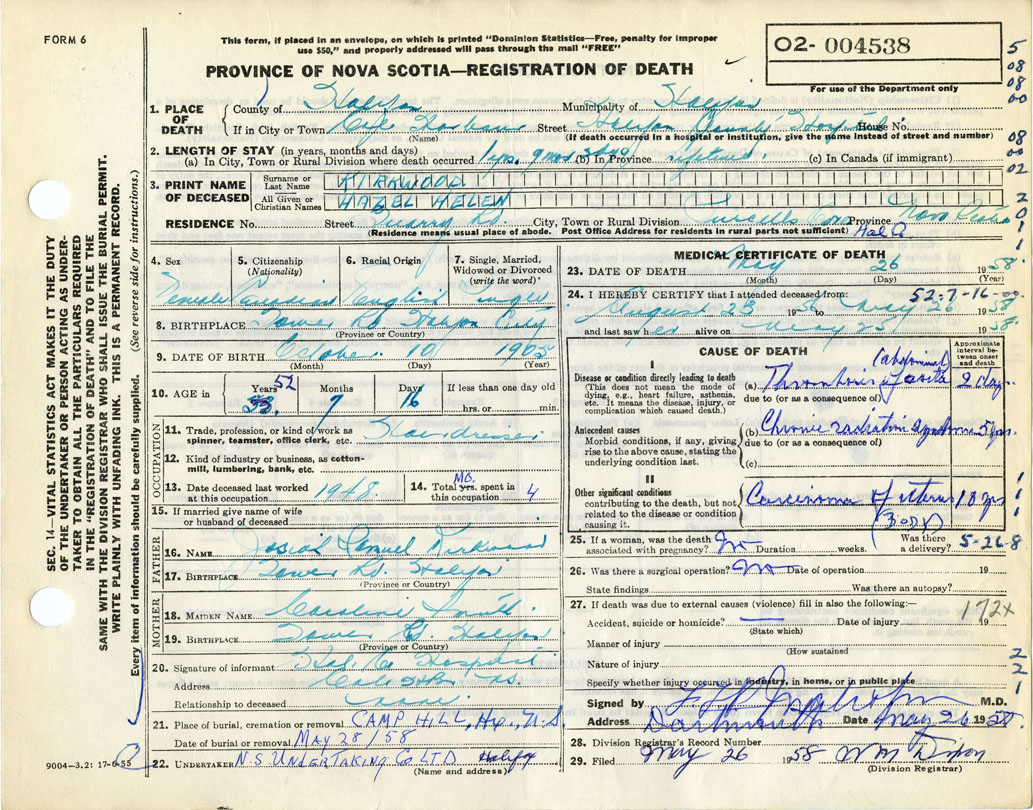 FORM 6
This form, if placed in an envelope, on which is printed "Dominion Statistics—Free, penalty for improper
use $50," and properly addressed will pass through the mail "FREE"
PROVINCE OF NOVA SCOTIA—REGISTRATION OF DEATH
02- 004538
For use of the Department only
5
08
08
00
08
00
02
2
0
1
1
1. PLACE OF DEATH
County of Halifax Municipality of Halifax
If in City or Town Cole Harbour Street Halifax County Hospital House No.
(Name) (If death occurred in a hospital or institution, give the name instead of street and number)
2. LENGTH OF STAY (in years, months and days)
(a) In City, Town or Rural Division where death occurred 1 yrs. 9 mos 3 dys (b) In Province Lifetime. (c) In Canada (if immigrant)
3. PRINT NAME OF DECEASED
Surname or Last Name KIRKWOOD
All Given or Christian Names HAZEL HELEN
RESIDENCE No. Street Quarry Rd. City, Town or Rural Division Purcells Cove Province Nova Scotia
(Residence means usual place of abode. Post Office Address for residents in rural parts not sufficient) Hal Co
4. Sex
Female
5. Citizenship
(Nationality)
Canadian
6. Racial Origin
English
7. Single, Married, Widowed or Divorced
(write the word)
Single
8. BIRTHPLACE Tower Rd. Halifax City
(Province or Country)
9. DATE OF BIRTH October 10 1905
(Month) (Day) (Year)
10. AGE in Years 53 52 Months 7 Days 16 If less than one day old
hrs. or min.
OCCUPATION
11. Trade, profession, or kind of work as
spinner, teamster, office clerk, etc. Hairdresser
12. Kind of industry or business, as cotton-
mill, lumbering, bank, etc.
13. Date deceased last worked
at this occupation 1948.
14. Total yrs. MO. spent in
this occupation 4
15. If married give name of wife
or husband of deceased
FATHER
16. NAME Josiah Samuel Kirkwood
17. BIRTHPLACE Tower Rd. Halifax
(Province or Country)
MOTHER
18. MAIDEN NAME Caroline Smith.
19. BIRTHPLACE Tower Rd. Halifax
(Province or Country)
20. Signature of informant Hal. Co Hospital
Address Cole Hbr. N.S.
Relationship to deceased none
21. Place of burial, cremation or removal CAMP HILL, Hx., N.S.
Date of burial or removal MAY 28/58
22. UNDERTAKER N.S UNDERTAKING CO LTD Halifax
(Name and address)
9004-3.2: 17-6-55
MEDICAL CERTIFICATE OF DEATH
23. DATE OF DEATH May 26 1958.
(Month) (Day) (Year)
52-7-16
24. I HEREBY CERTIFY that I attended deceased from:
August 23 1956 to May 26 1958
and last saw her alive on May 25 1958
CAUSE OF DEATH
Approximate interval between onset and death
I
Disease or condition directly leading to death
(This does not mean the mode of dying, e.g., heart failure, asthenia, etc. It means the disease, injury, or complication which caused death.)
(a) Thrombosis of aorta (abdominal 2 days
due to (or as consequence of)
Antecedent causes
Morbid conditions, if any, giving rise to the above cause, stating the underlying condition last.
(b) Chronic radiation syndrome 5 yrs
due to (or as consequence of)
(c)
II
Other significant conditions
contributing to the death, but not related to the disease or condition causing it.
Carcinoma of uterus 18 yrs
(Body)
25. If a woman, was the death
associated with pregnancy? No Duration weeks. Was there a delivery? 5-26-8
26. Was there a surgical operation? No Date of operation 19
State findings Was there an autopsy?
27. If death was due to external causes (violence) fill in also the following:—
172x
Accident, suicide or homicide? Date of injury 19
(State which)
Manner of injury
(How sustained
Nature of injury
Specify whether injury occurred in industry, in home, or in public place
Signed by M.D.
Address Dartmouth Date May 26 1958
28. Division Registrar's Record Number
29. Filed May 26 1958
(Division Registrar)
1
1
1
2
2
1
SEC. 14—VITAL STATISTICS ACT MAKES IT THE DUTY
OF THE UNDERTAKER OR PERSON ACTING AS UNDER-
TAKER TO OBTAIN ALL THE PARTICULARS REQUIRED
IN THE "REGISTRATION OF DEATH" AND TO FILE THE
SAME WITH THE DIVISION REGISTRAR WHO SHALL ISSUE THE BURIAL PERMIT.
WRITE PLAINLY WITH UNFADING INK. THIS IS A PERMANENT RECORD.
Every item of information should be carefully supplied. (See reverse side for instructions.)